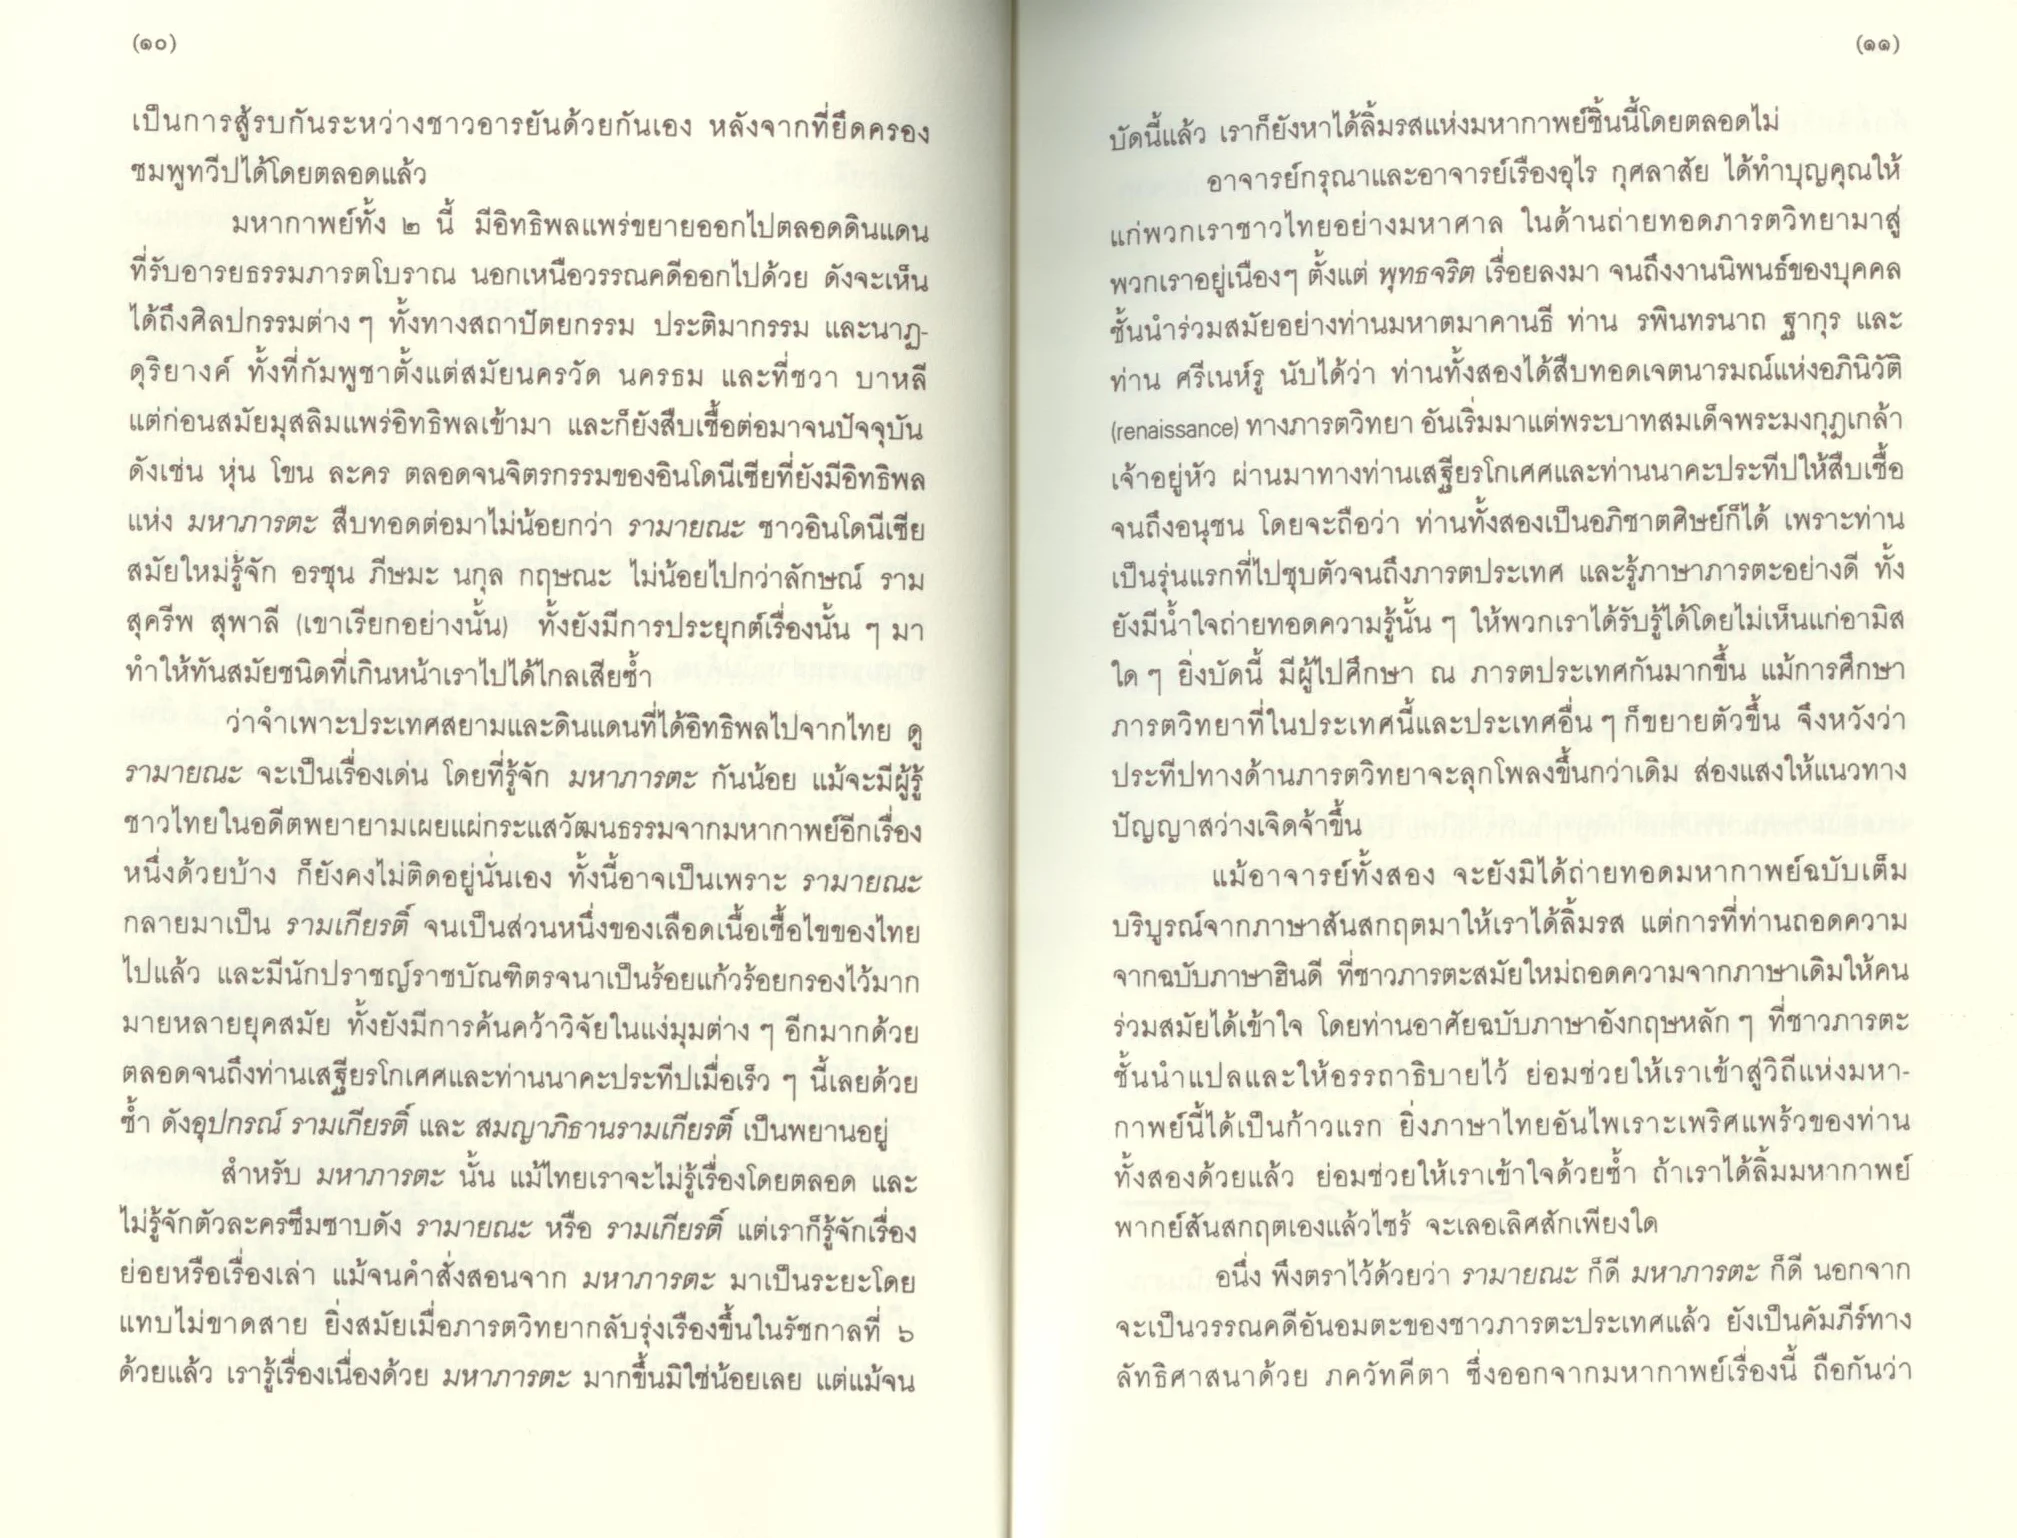 (๑๐)
เป็นการสู้รบกันระหว่างชาวอารยันด้วยกันเอง หลังจากที่ยึดครอง
ชมพูทวีปได้โดยตลอดแล้ว
มหากาพย์ทั้ง ๒ นี้ มีอิทธิพลแพร่ขยายออกไปตลอดดินแดน
ที่รับอารยธรรมภารตโบราณ นอกเหนือวรรณคดีออกไปด้วย ดังจะเห็น
ได้ถึงศิลปกรรมต่าง ๆ ทั้งทางสถาปัตยกรรม ประติมากรรม และนาฏ-
ดุริยางค์ ทั้งที่กัมพูชาตั้งแต่สมัยนครวัด นครธม และที่ชวา บาหลี
แต่ก่อนสมัยมุสลิมแพร่อิทธิพลเข้ามา และก็ยังสืบเชื้อต่อมาจนปัจจุบัน
ดังเช่น หุ่น โขน ละคร ตลอดจนจิตรกรรมของอินโดนีเซียที่ยังมีอิทธิพล
แห่ง มหาภารตะ สืบทอดต่อมาไม่น้อยกว่า รามายณะ ชาวอินโดนีเซีย
สมัยใหม่รู้จัก อรชุน ภีษมะ นกุล กฤษณะ ไม่น้อยไปกว่าลักษณ์ ราม
สุครีพ สุพาลี (เขาเรียกอย่างนั้น) ทั้งยังมีการประยุกต์เรื่องนั้น ๆ มา
ทำให้ทันสมัยชนิดที่เกินหน้าเราไปได้ไกลเสียซ้ำ
ว่าจำเพาะประเทศสยามและดินแดนที่ได้อิทธิพลไปจากไทย ดู
รามายณะ จะเป็นเรื่องเด่น โดยที่รู้จัก มหาภารตะ กันน้อย แม้จะมีผู้รู้
ชาวไทยในอดีตพยายามเผยแผ่กระแสวัฒนธรรมจากมหากาพย์อีกเรื่อง
หนึ่งด้วยบ้าง ก็ยังคงไม่ติดอยู่นั่นเอง ทั้งนี้อาจเป็นเพราะ รามายณะ
กลายมาเป็น รามเกียรติ์ จนเป็นส่วนหนึ่งของเลือดเนื้อเชื้อไขของไทย
ไปแล้ว และมีนักปราชญ์ราชบัณฑิตรจนาเป็นร้อยแก้วร้อยกรองไว้มาก
มายหลายยุคสมัย ทั้งยังมีการค้นคว้าวิจัยในแง่มุมต่าง ๆ อีกมากด้วย
ตลอดจนถึงท่านเสฐียรโกเศศและท่านนาคะประทีปเมื่อเร็ว ๆ นี้เลยด้วย
ซ้ำ ดังอุปกรณ์ รามเกียรติ์ และ สมญาภิธานรามเกียรติ์ เป็นพยานอยู่
สำหรับ มหาภารตะ นั้น แม้ไทยเราจะไม่รู้เรื่องโดยตลอด และ
ไม่รู้จักตัวละครซึมซาบดัง รามายณะ หรือ รามเกียรติ์ แต่เราก็รู้จักเรื่อง
ย่อยหรือเรื่องเล่า แม้จนคำสั่งสอนจาก มหาภารตะ มาเป็นระยะโดย
แทบไม่ขาดสาย ยิ่งสมัยเมื่อภารตวิทยากลับรุ่งเรืองขึ้นในรัชกาลที่ ๖
ด้วยแล้ว เรารู้เรื่องเนื่องด้วย มหาภารตะ มากขึ้นมิใช่น้อยเลย แต่แม้จน
(๑๑)
บัดนี้แล้ว เราก็ยังหาได้ลิ้มรสแห่งมหากาพย์ชิ้นนี้โดยตลอดไม่
อาจารย์กรุณาและอาจารย์เรืองอุไร กุศลาสัย ได้ทำบุญคุณให้
แก่พวกเราชาวไทยอย่างมหาศาล ในด้านถ่ายทอดภารตวิทยามาสู่
พวกเราอยู่เนืองๆ ตั้งแต่ พุทธจริต เรื่อยลงมา จนถึงงานนิพนธ์ของบุคคล
ชั้นนำร่วมสมัยอย่างท่านมหาตมาคานธี ท่าน รพินทรนาถ ฐากุร และ
ท่าน ศรีเนห์รู นับได้ว่า ท่านทั้งสองได้สืบทอดเจตนารมณ์แห่งอภินิวัติ
(renaissance) ทางภารตวิทยา อันเริ่มมาแต่พระบาทสมเด็จพระมงกุฎเกล้า
เจ้าอยู่หัว ผ่านมาทางท่านเสฐียรโกเศศและท่านนาคะประทีปให้สืบเชื้อ
จนถึงอนุชน โดยจะถือว่า ท่านทั้งสองเป็นอภิชาตศิษย์ก็ได้ เพราะท่าน
เป็นรุ่นแรกที่ไปชุบตัวจนถึงภารตประเทศ และรู้ภาษาภารตะอย่างดี ทั้ง
ยังมีน้ำใจถ่ายทอดความรู้นั้น ๆ ให้พวกเราได้รับรู้ได้โดยไม่เห็นแก่อามิส
ใด ๆ ยิ่งบัดนี้ มีผู้ไปศึกษา ณ ภารตประเทศกันมากขึ้น แม้การศึกษา
ภารตวิทยาที่ในประเทศนี้และประเทศอื่น ๆ ก็ขยายตัวขึ้น จึงหวังว่า
ประทีปทางด้านภารตวิทยาจะลุกโพลงขึ้นกว่าเดิม ส่องแสงให้แนวทาง
ปัญญาสว่างเจิดจ้าขึ้น
แม้อาจารย์ทั้งสอง จะยังมิได้ถ่ายทอดมหากาพย์ฉบับเต็ม
บริบูรณ์จากภาษาสันสกฤตมาให้เราได้ลิ้มรส แต่การที่ท่านถอดความ
จากฉบับภาษาฮินดี ที่ชาวภารตะสมัยใหม่ถอดความจากภาษาเดิมให้คน
ร่วมสมัยได้เข้าใจ โดยท่านอาศัยฉบับภาษาอังกฤษหลัก ๆ ที่ชาวภารตะ
ชั้นนำแปลและให้อรรถาธิบายไว้ ย่อมช่วยให้เราเข้าสู่วิถีแห่งมหา-
กาพย์นี้ได้เป็นก้าวแรก ยิ่งภาษาไทยอันไพเราะเพริศแพร้วของท่าน
ทั้งสองด้วยแล้ว ย่อมช่วยให้เราเข้าใจด้วยซ้ำ ถ้าเราได้ลิ้มมหากาพย์
พากย์สันสกฤตเองแล้วไซร้ จะเลอเลิศสักเพียงใด
อนึ่ง พึงตราไว้ด้วยว่า รามายณะ ก็ดี มหาภารตะ ก็ดี นอกจาก
จะเป็นวรรณคดีอันอมตะของชาวภารตะประเทศแล้ว ยังเป็นคัมภีร์ทาง
ลัทธิศาสนาด้วย ภควัทคีตา ซึ่งออกจากมหากาพย์เรื่องนี้ ถือกันว่า